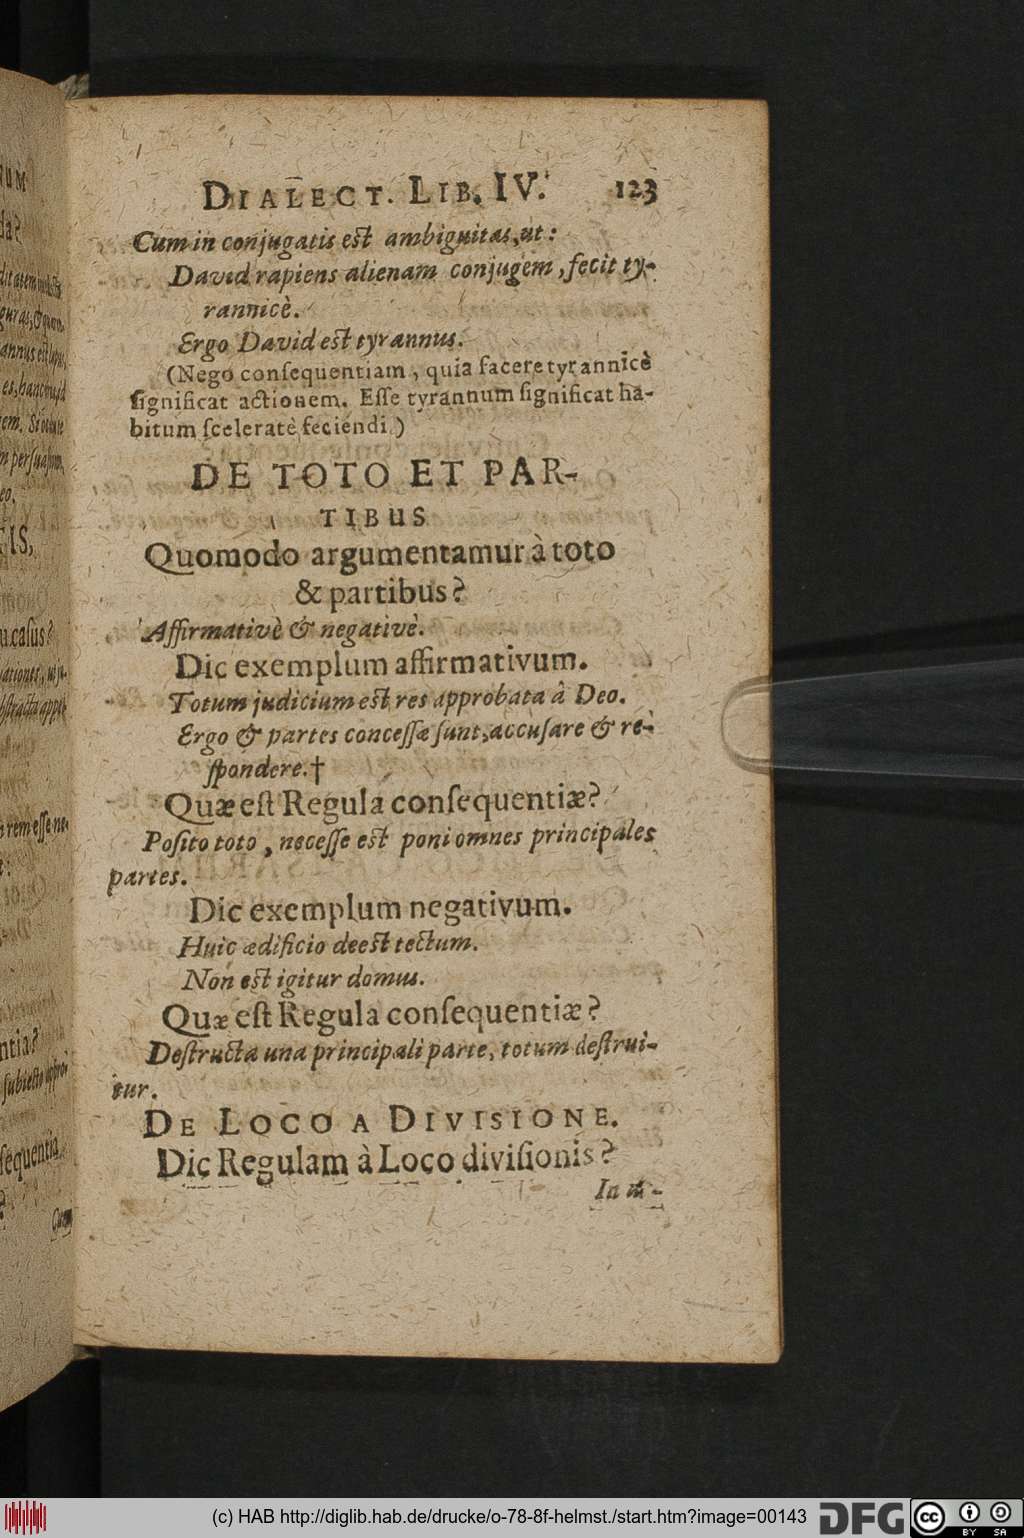 DIALECT. LIB. IV. 123
Cum in conjugatis est ambiguitas, ut:
David rapiens alienam conjugem, fecit ty-
rannicè.
Ergo David est tyrannus.
(Nego conſequentiam, quia facere tyrannicè
ſignificat actionem. Eſſe tyrannum ſignificat ha-
bitum ſceleratè feciendi.)
DE TOTO ET PAR-
TIBUS
Quomodo argumentamur à toto
& partibus?
Affirmativè & negativè.
Dic exemplum affirmativum.
Totum judicium est res approbata â Deo.
Ergo & partes conceſſæ ſunt, accuſare & re-
ſpondere.†
Quæ eſt Regula conſequentiæ?
Poſito toto, neceſſe est poni omnes principales
partes.
Dic exemplum negativum.
Huic ædificio deest tectum.
Non est igitur domus.
Quæ eſt Regula conſequentiæ?
Deſtructa una principali parte, totum deſtrui-
tur.
DE LOCO A DIVISIONE.
Dic Regulam à Loco diviſionis?
In
(c) HAB http://diglib.hab.de/drucke/o-78-8f-helmst./start.htm?image=00143
DFG
cc
BY SA